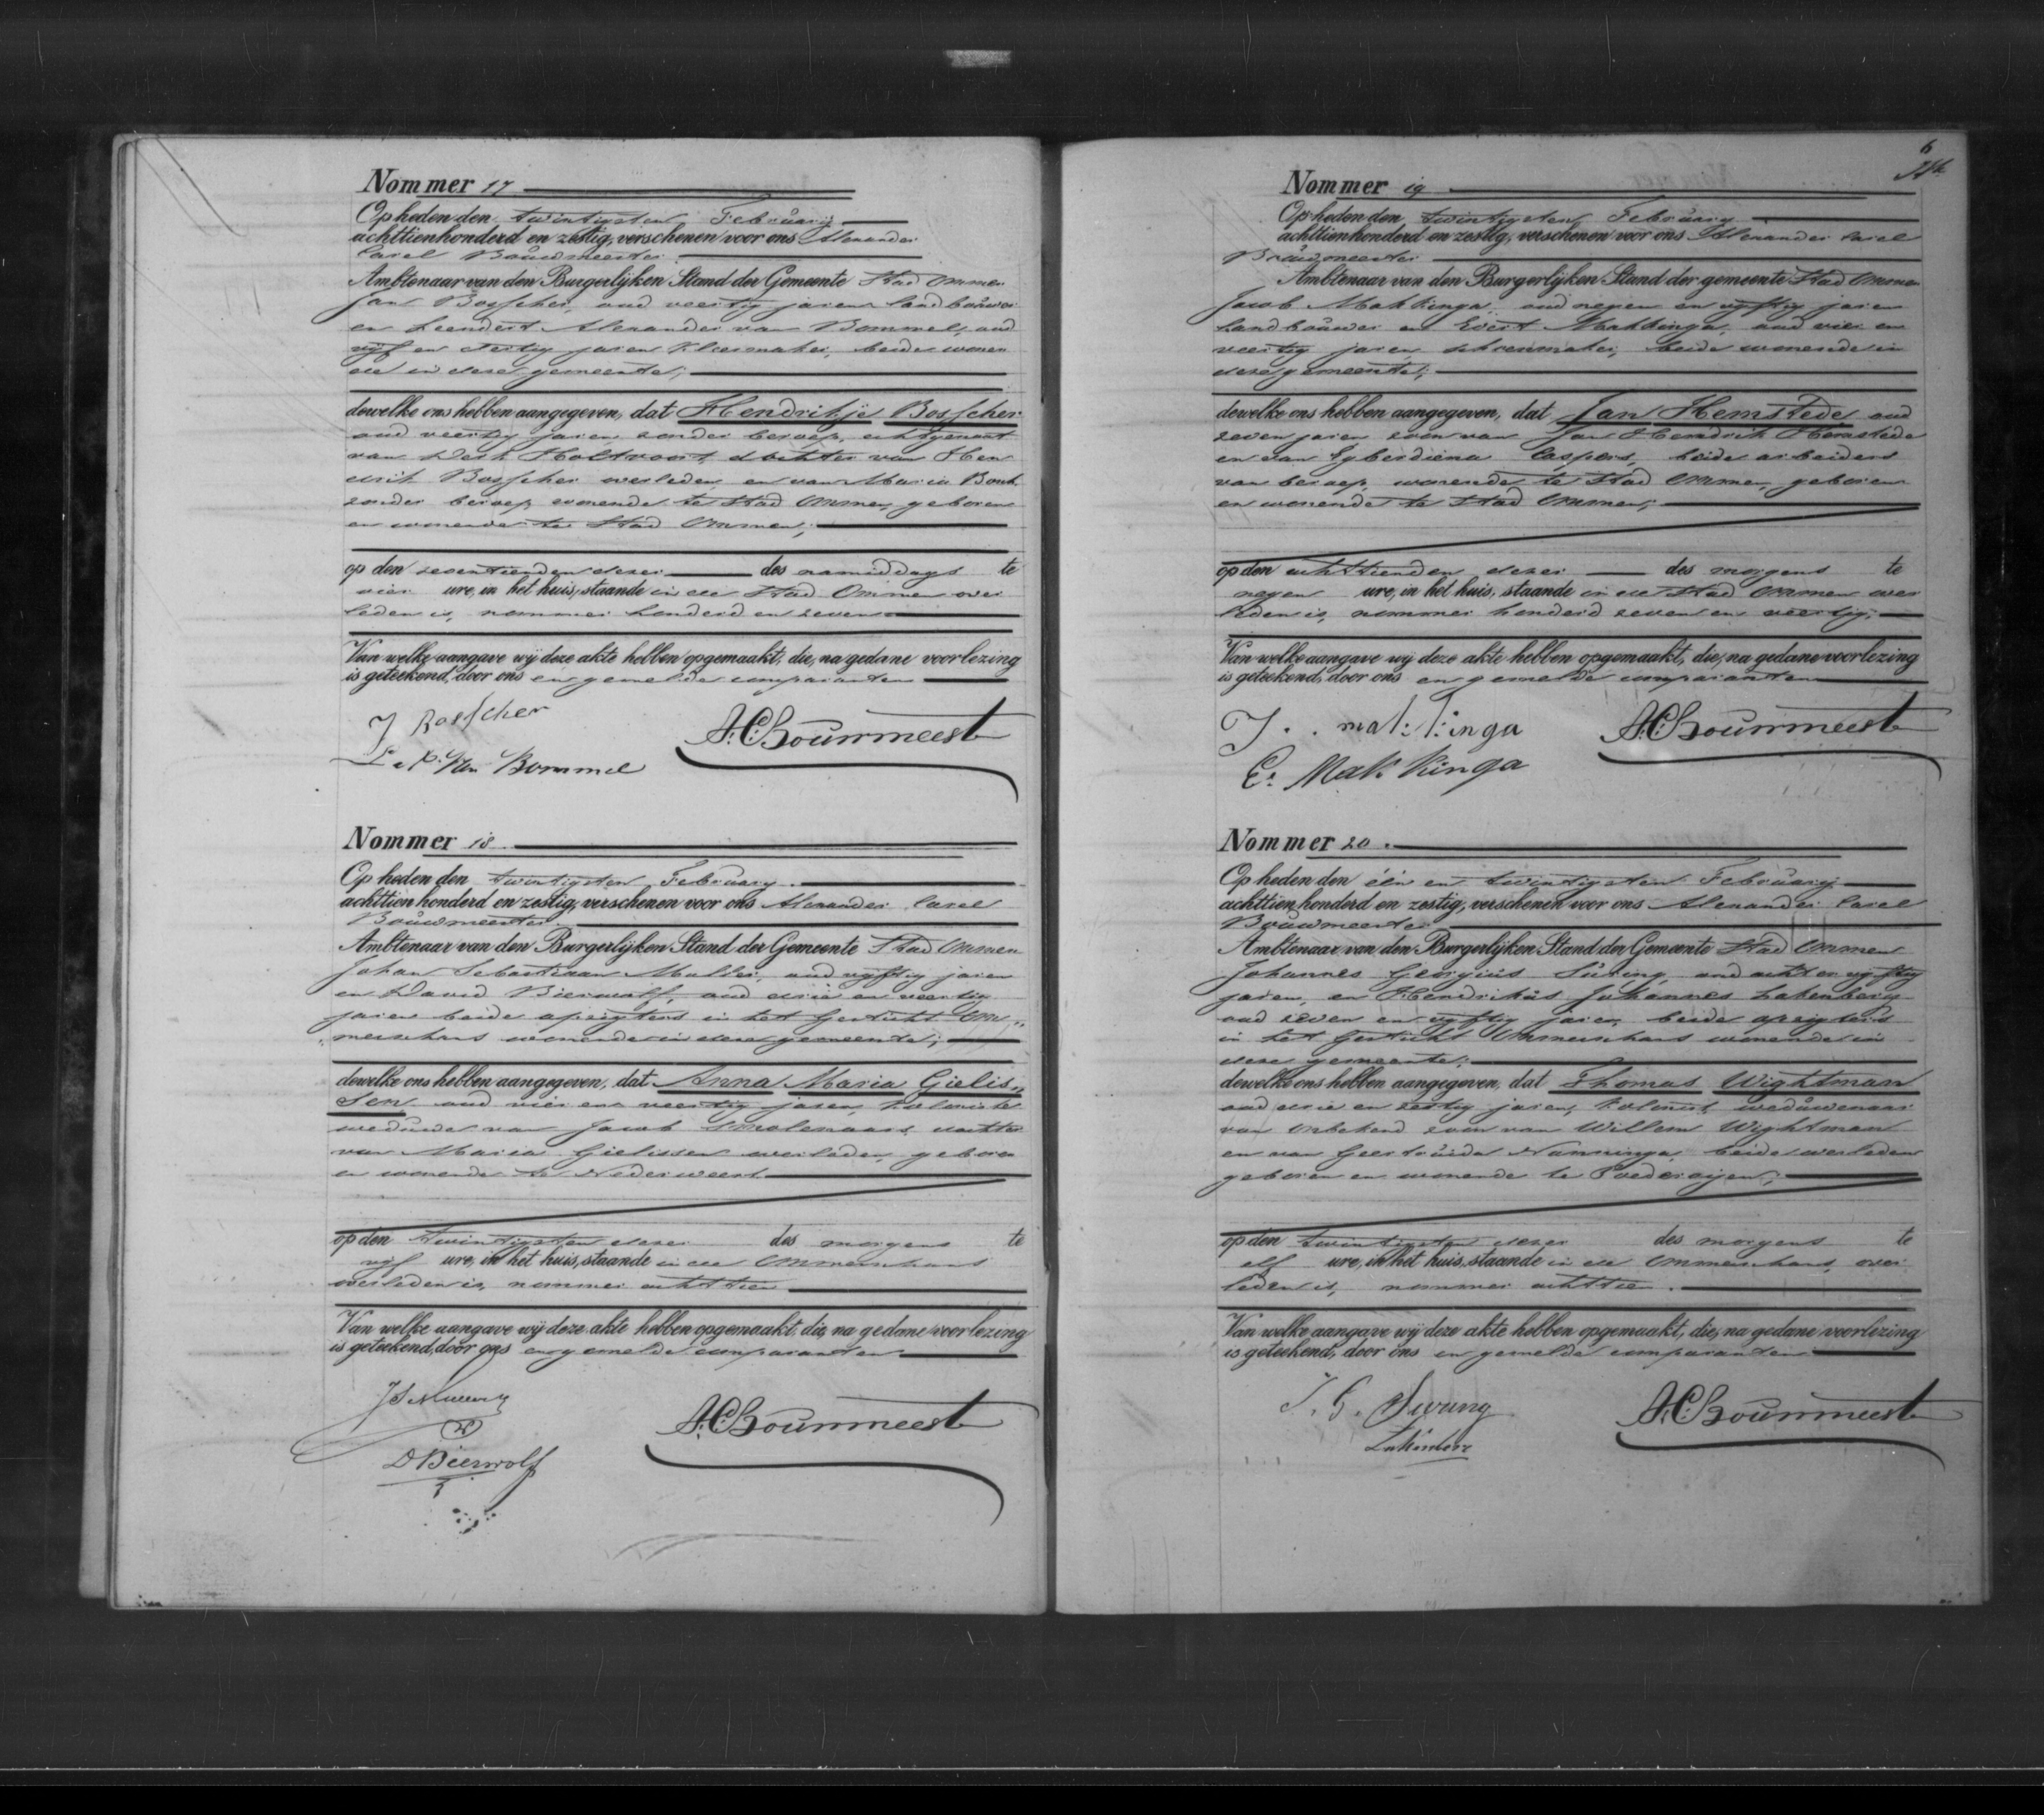 Nommer 17
Op heden den twintigsten February
achttienhonderd en zestig, verschenen voor ons Alexander
Carel Bouwmeester
Ambtenaar van den Burgerlijken Stand der Gemeente Stad Ommen
Jan Bosscher, oud veertig jaren landbouwer
en Leendert Alexander van Bommel, oud
vijf en dertig jaren kleermaker, beide wonen
de in deze gemeente;
dewelke ons hebben aangegeven, dat Hendrikje Bosscher
oud veertig jaren zonder beroep, echtgenoot
van Derk Holtvoort, dochter van Hen
drik Bosscher overleden en van Maria Bonk
zonder beroep wonende te Stad Ommen, geboren
en wonende te Stad Ommen;
op den zeventienden dezer des namiddags te
vier ure, in het huis, staande in de Stad Ommen over
leden is, nommer honderd en zeven
Van welke aangave wij deze akte hebben opgemaakt, die, na gedane voorlezing
is geteekend, door ons en gemelde comparanten
J Bosscher
A.C. Bouwmeester
L. A. Van Bommel
Nommer 18
Op heden den twintigsten February
achttienhonderd en zestig, verschenen voor ons Alexander Carel
Bouwmeester
Ambtenaar van den Burgerlijken Stand der Gemeente Stad Ommen
Johan Sebastiaan Muller, oud vijftig jaren
en David Bierwolf, oud drie en veertig
jaren beide opzigters in het Gesticht Om„
„merschans wonende in deze gemeente;
dewelke ons hebben aangegeven, dat Anna Maria Gielis„
sen oud vier en veertig jaren, koloniste
weduwe van Jacob Smolenaars dochter
van Maria Gielissen overleden, geboren
en wonende te Nederweert
op den twintigsten dezer des morgens te
vijf ure, in het huis, staande in de Ommerschans
overleden is, nommer achttien
Van welke aangave wij deze akte hebben opgemaakt, die, na gedane voorlezing
is geteekend, door ons en gemelde comparanten
A.C. Bouwmeester
D Bierwolf
6
Nommer 19
Op heden den twintigsten February
achttienhonderd en zestig, verschenen voor ons Alexander Carel
Bouwmeester
Ambtenaar van den Burgerlijken Stand der gemeente Stad Ommen
Jacob Makkinga, oud negen en vijftig jaren
landbouwer en Evert Makkinga, oud vier en
veertig jaren, schoenmaker, beide wonende in
deze gemeente;
dewelke ons hebben aangegeven, dat Jan Hemstede oud
zeven jaren zoon van Jan Hendrik Hemstede
en van Egberdiena Caspers, beide arbeiders
van beroep, wonende te Stad Ommen, geboren
en wonende te Stad Ommen;
op den achttienden dezer des morgens te
negen ure, in het huis, staande in de Stad Ommen over
leden is, nommer honderd zeven en veertig;
Van welke aangave wij deze akte hebben opgemaakt, die, na gedane voorlezing
is geteekend, door ons en gemelde comparanten
J. makkinga
A.C. Bouwmeester
E. Makkinga
Nommer 20
Op heden den één en twintigsten February
achttienhonderd en zestig, verschenen voor ons Alexander Carel
Bouwmeester
Ambtenaar van den Burgerlijken Stand der Gemeente Stad Ommen
Johannes Georgius Süring, oud acht en vijftig
jaren, en Hendrikus Johannes Lakenberg
oud zeven en vijftig jaren, beide opzigters
in het Gesticht Ommerschans wonende in
deze gemeente;
dewelke ons hebben aangegeven, dat Thomas Wightman
oud drie en zestig jaren, kolonist, weduwenaar
van onbekend zoon van Willem Wightman
en van Geertruida Nanninga, beide overleden
geboren en wonende te Poederoijen;
op den twintigsten dezer des morgens te
elf ure, in het huis, staande in de Ommerschans, over
leden is, nommer achttien.
Van welke aangave wij deze akte hebben opgemaakt, die, na gedane voorlezing
is geteekend, door ons en gemelde comparanten
J. G.
A.C. Bouwmeester